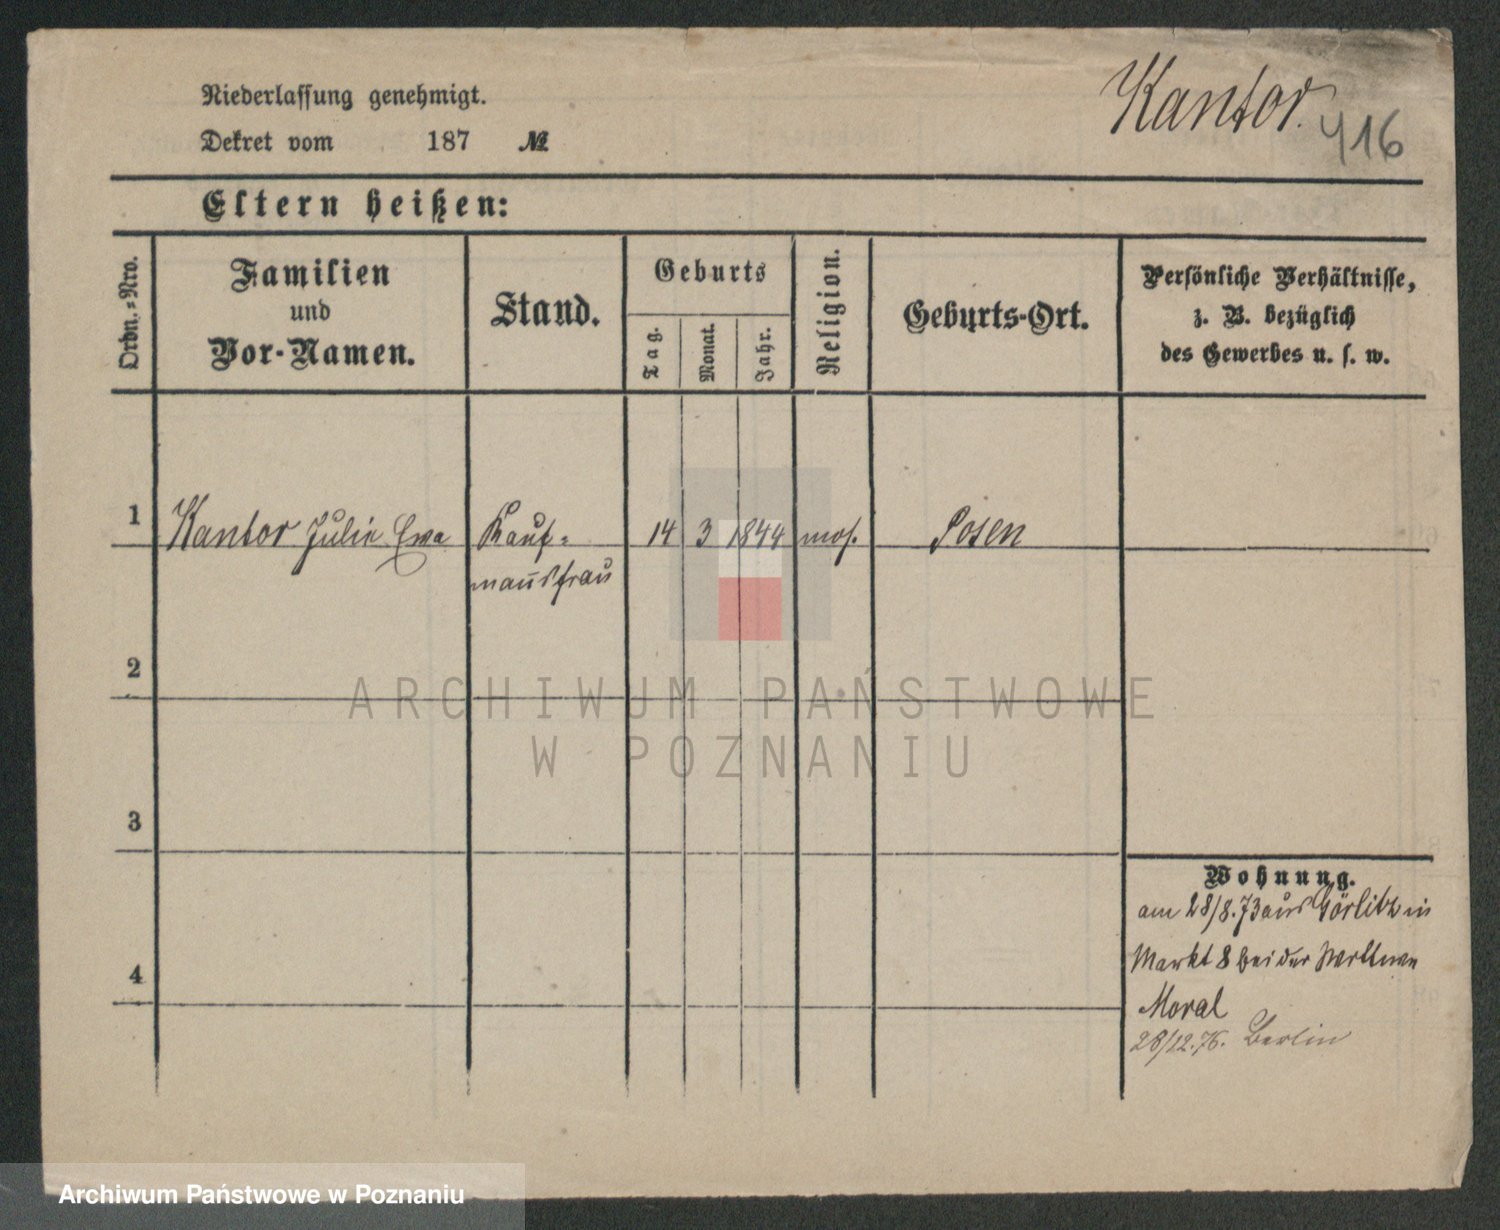 Niederlassung genehmigt.
Dekret vom 187 №
Kantor.
416
Eltern heißen:
Ordn.-Nro.
Familien
und
Vor-Namen.
Stand.
Geburts
Tag.
Monat.
Jahr.
Religion.
Geburts-Ort.
Persönliche Verhältnisse,
z. B. bezüglich
des Gewerbes u. s. w.
1 Kantor Julie Ewa Kauf= 14 3 1844 mos. Posen
mannsfrau
2
ARCHIWUM PAŃSTWOWE
W POZNANIU
3
Wohnung.
am 28/8.73 aus Görlitz in
Markt 8 bei der
4
Moral
28/12.76. Berlin
Archiwum Państwowe w Poznaniu